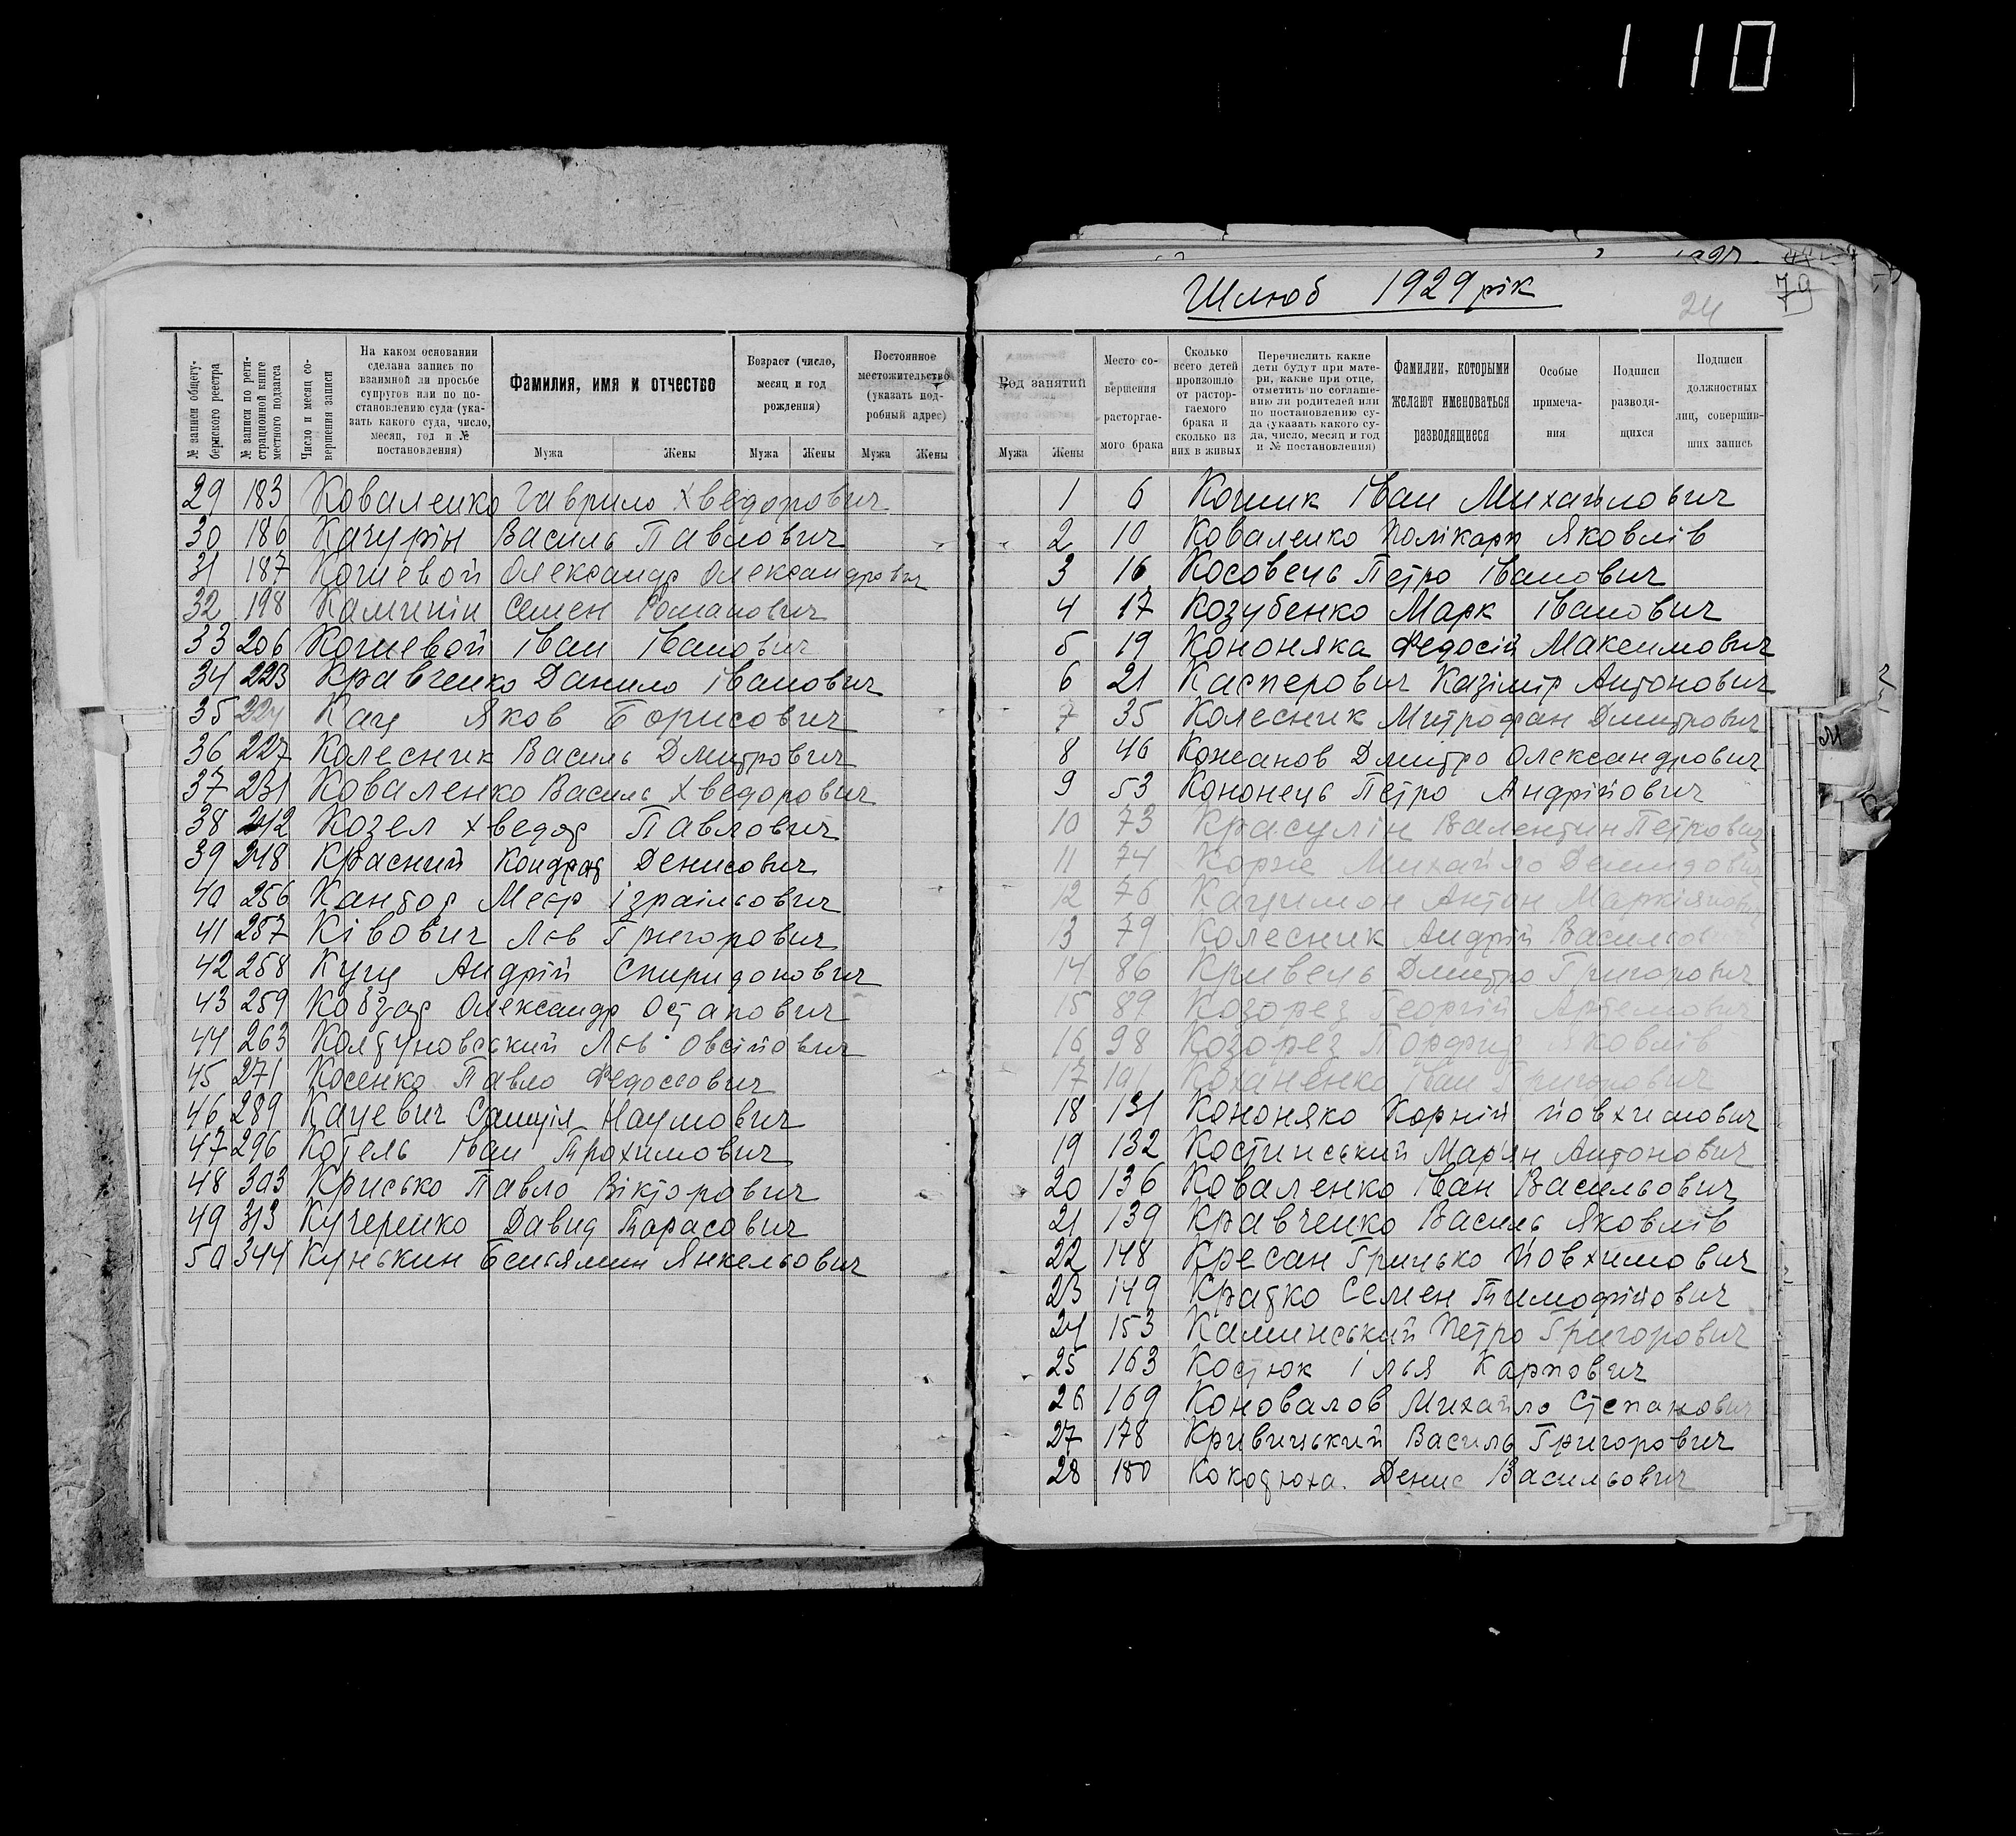 110
№ записи общегубернского реестра
№ записи по регистрационной книге местного подзагса
Число и месяц совершения записи
На каком основании сделана запись по взаимной ли просьбе супругов или по постановлению суда (указать какого суда, число, месяц, год и № постановления)
Фамилия, имя и отчество
Возраст (число, месяц и год рождения)
Постоянное местожительство (указать подробный адрес)
Мужа Жены Мужа Жены Мужа Жены
29 183 Коваленко Гаврило Хведорович
30 186 Качурін Василь Павлович
31 187 Кошевой Олександр Олександрович
32 198 Калинін Семен Романович
33 206 Кошевой Іван Іванович
34 223 Кравченко Данило Іванович
35 224 Кац Яков Борисович
36 227 Колесник Василь Дмитрович
37 231 Коваленко Василь Хведорович
38 242 Козел Хведор Павлович
39 248 Красний Кондрат Денисович
40 256 Кантор Меєр Ізраільович
41 257 Ківович Лев Григорович
42 258 Куц Андрій Спиридонович
43 259 Кобзар Олександр Остапович
44 263 Колтуновський Лев Овсійович
45 271 Косенко Павло Федосович
46 289 Кацевич Самуїл Наумович
47 296 Котель Іван Трохимович
48 303 Крисько Павло Вікторович
49 313 Кучеренко Давид Тарасович
50 344 Кунькин Беньямин Янкельович
Шлюб 1929 рік
24
79
Род занятий
Место совершения расторгаемого брака
Сколько всего детей произошло от расторгаемого брака и сколько из них в живых
Перечислить какие дети будут при матери, какие при отце, отметить по соглашению ли родителей или по постановлению суда (указать какого суда, число, месяц и год и № постановления)
Фамилии, которыми желают именоваться разводящиеся
Особые примечания
Подписи разводящихся
Подписи должностных лиц, совершивших запись
Мужа Жены
1 6 Кошик Іван Михайлович
2 10 Коваленко Полікарп Яковлів
3 16 Косовець Петро Іванович
4 17 Козубенко Марк Іванович
5 19 Кононяка Федосій Максимович
6 21 Касперович Казімір Антонович
7 35 Колесник Митрофан Дмитрович
8 46 Кожанов Дмитро Олександрович
9 53 Кононець Петро Андрійович
10 73 Красулін Валентин Петрович
11 74 Корж Михайло Демидович
12 76 Кацимон Антон Маркіянович
13 79 Колесник Андрій Васильович
14 86 Кривець Дмитро Григорович
15 89 Козорез Георгій Артемович
16 98 Козорез Порфир Яковлів
17 101 Коханенко Іван Григорович
18 131 Кононяко Корній Йовхимович
19 132 Костинський Мар'ян Антонович
20 136 Коваленко Іван Васильович
21 139 Кравченко Василь Яковлів
22 148 Кресан Грицько Йовхимович
23 149 Кратко Семен Тимофійович
24 153 Каминський Петро Григорович
25 163 Костюк Ілья Карпович
26 169 Коновалов Михайло Степанович
27 178 Кривицький Василь Григорович
28 180 Кокотюха Денис Васильович